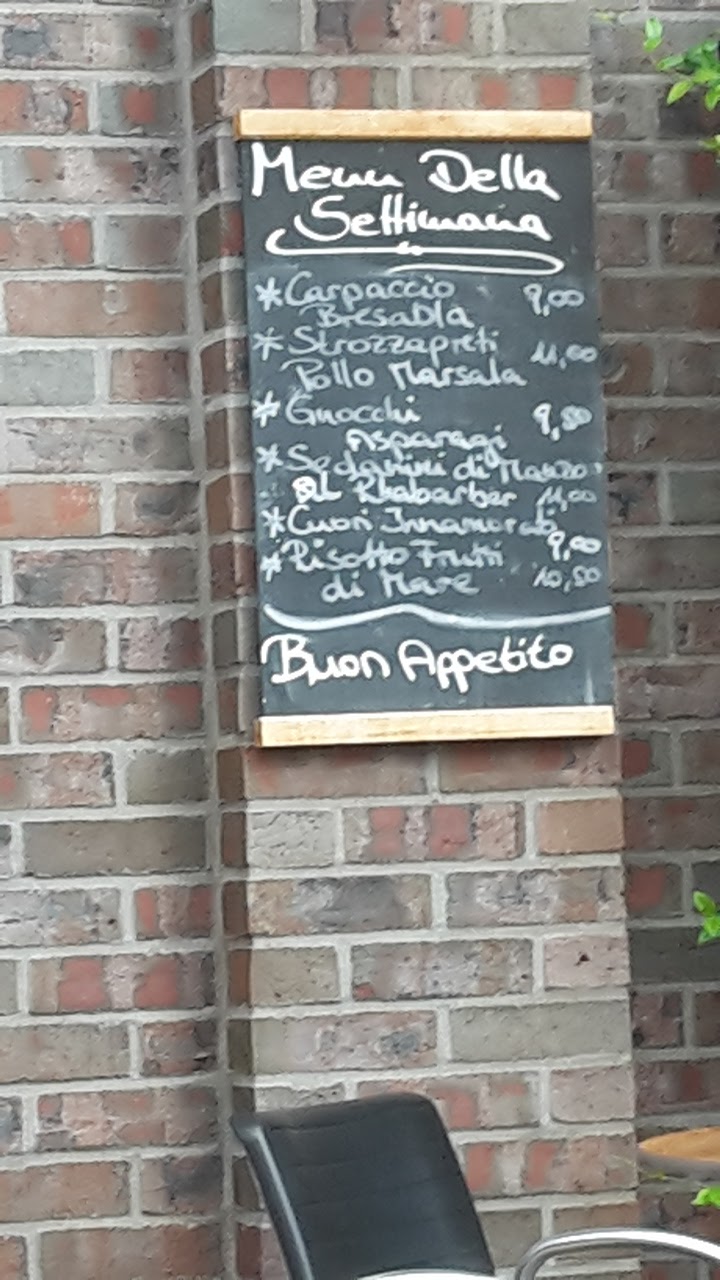 Menu Della
Settimana
*Carpaccio 9,00
Bresaola
*Strozzapreti 11,00
Pollo Marsala
*Gnocchi 9,50
Asparagi
*Sedanini di Manzo
al Rhabarber 11,00
*Cuori Innamorati
9,00
*Risotto Frutti
di Mare 10,50
Buon Appetito